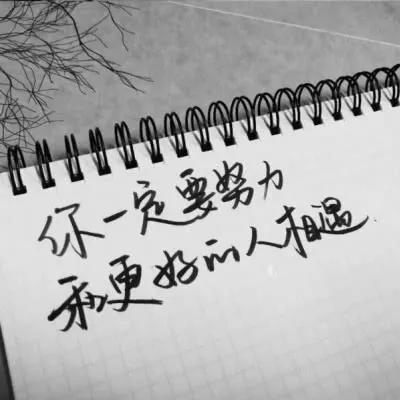 你一定要努力
和更好的人相遇.